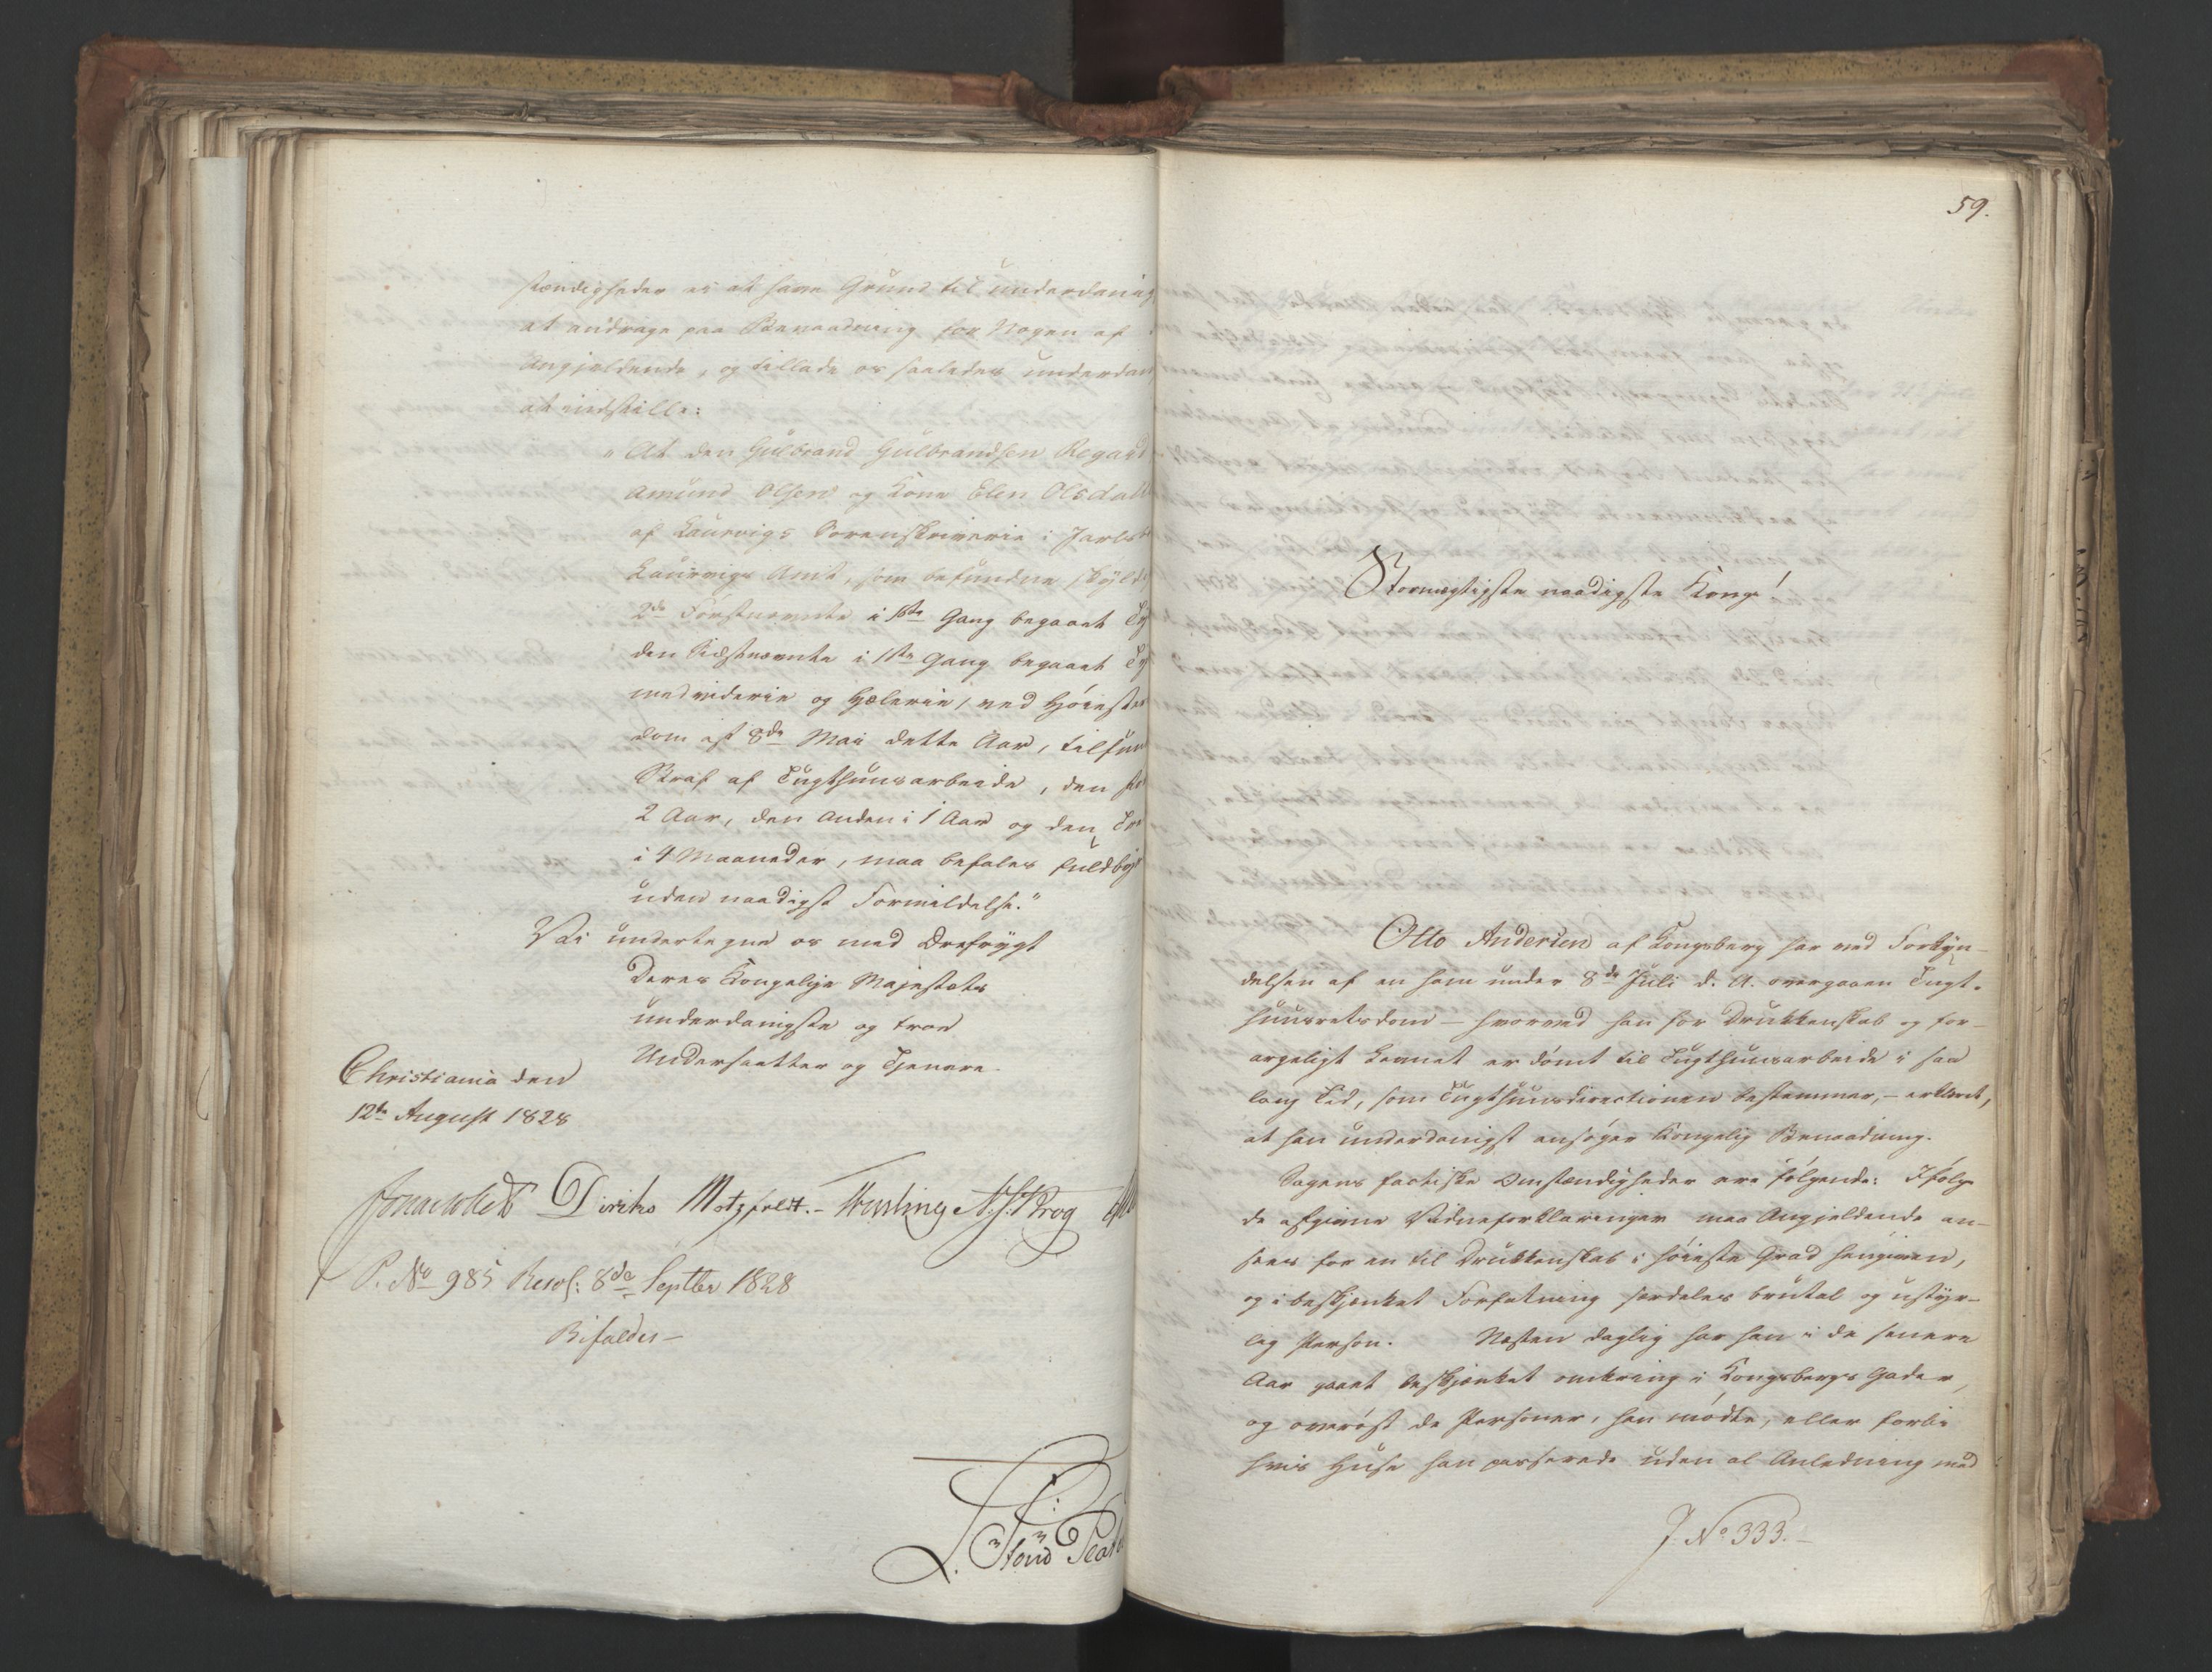 stændigheder ei at have Grund til underdanig
at andrage paa Benaadning for Nogen af
Angjeldende, og tillade os saaledes underdan
at indstille:
"At den Gulbrand Gulbrandsen Regard
Amund Olsen og Kone Elen Olsdatt
af Laurvigs Sorenskriverie i Jarlsb
Laurvigs Amt, som befundne skyld
2de Førstnævnte i 1ste Gang begaaet Ty
den Sidstnævnte i 1ste Gang begaaet Ty
medviderie og Hælerie, ved Høieste
dom af 8de Mai dette Aar, tilfun
Straf af Tugthuusarbeide, den
2 Aar, den Anden i 1 Aar og den
i 4 Maaneder, maa befales fuldbyr
uden naadigst Formildelse."
Vi undertegne os med Ærefrygt
Deres Kongelige Majestæts
underdanigste og troe
Undersaatter og Tjenere.
Christiania den
12te August 1828
Jonas Collett Diriks Motzfeldt. N. J. Krog
P. No 985 Resol: 8de Septbr 1828
Bifaldes—
59.
Stormægtigste naadigste Konge!
Otto Andersen af Kongsberg har ved Forkyn-
delsen af en ham under 8de Juli d. A. overgaaen Tugt-
huusretsdom — hvorved han for Drukkenskab og for-
argeligt Levnet er dømt til Tugthuusarbeide i saa
lang Tid, som Tugthuusdirectionen bestemmer, — erklæret,
at han underdanigst ansøger Kongelig Benaadning.
Sagens factiske Omstændigheder ere følgende: Ifølge
de afgivne Vidneforklaringer maa Angjeldende an-
sees for en til Drukkenskab i høieste Grad hengiven,
og i beskjænket Forfatning særdeles brutal og ustyr-
lig Person. Næsten daglig har han i de senere
Aar gaaet beskjænket omkring i Kongsbergs Gader,
og overøst de Personer, han mødte, eller forbi
hvis Huse han passerede uden al Anledning med
J. No 333.—